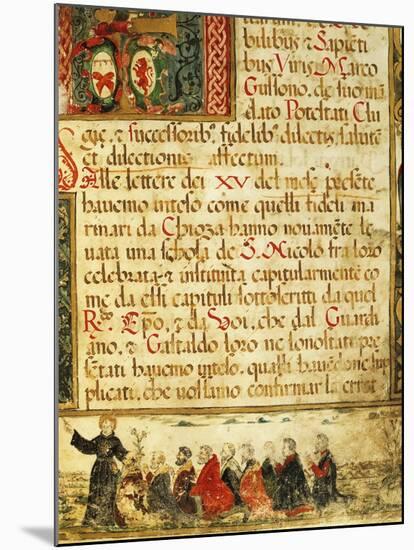 bilibus & Sapiēti
bus Viris Marco
Gussono, de suo man
dato Potestati Clu
giæ, & successoribº fidelibº dilectis salutē
et dilectionis affectum.
Alle lettere dei XV del mese presēte
havemo inteso come quelli fideli ma
rinari da Chioza hanno novamēte le
vata una schola de S. Nicolo fra loro
celebrata, & instituita capitularmente co
me da essi capituli sottoscritti da quel
Rº. Epō, & da Voi, che dal Guardi
ano, & Gastaldo loro ne sono stati pre
sētati havemo inteso, quali havēdone sup
plicati, che volsamo confirmar la eret